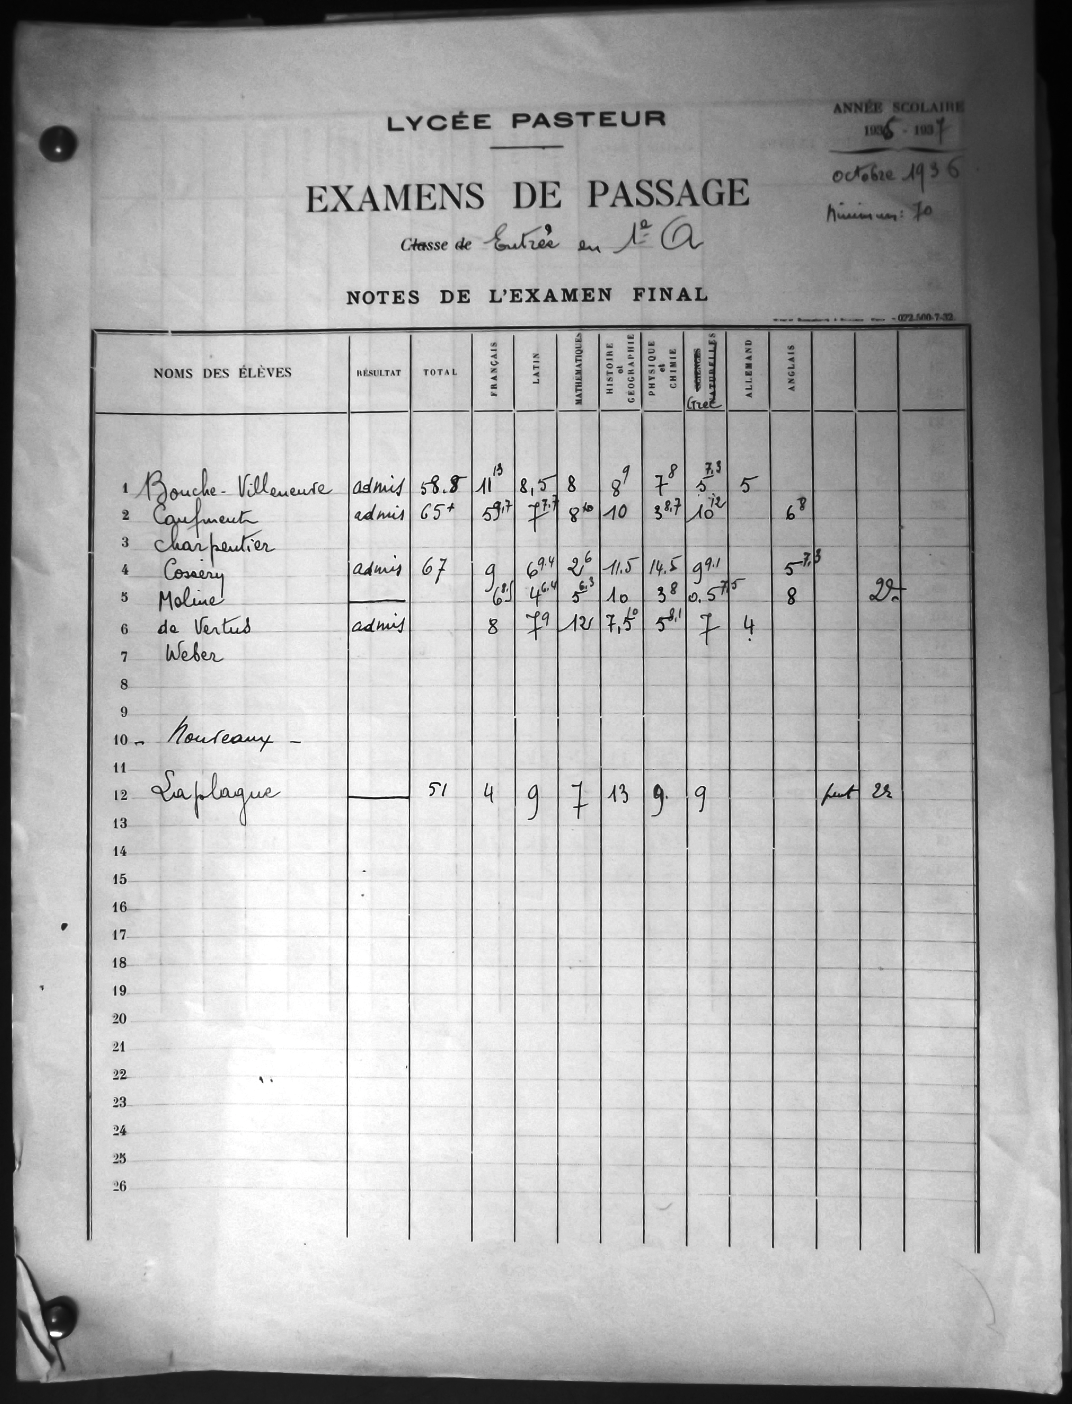 LYCÉE PASTEUR
ANNÉE SCOLAIRE
1936 - 1937
octobre 1936
Minimum: 70
EXAMENS DE PASSAGE
Classe de Entrée en 1e A
NOTES DE L'EXAMEN FINAL
072.500-7-32.
NOMS DES ÉLÈVES RÉSULTAT TOTAL FRANÇAIS LATIN MATHÉMATIQUES HISTOIRE et GÉOGRAPHIE PHYSIQUE et CHIMIE SCIENCES NATURELLES Grec ALLEMAND ANGLAIS
1 Bouche-Villeneuve admis 58.8 11 13 8,5 8 8 9 7 8 5 7,3 5
2 Caufment admis 65+ 5 9,7 7 7,7 8 10 10 3 8,7 10 12 6 8
3 Charpentier
4 Cossery admis 67 9 6 9.4 2 6 11.5 14.5 9 9.1 5 7,3
5 Moline 6 8,5 4 6,4 5 6,3 10 3 8 0.5 7,5 8
6 de Vertus admis 8 7 9 12 7,5 10 5 8,1 7 4
7 Weber
8
9
10 - Nouveaux -
11
12 Laplague 51 4 9 7 13 9. 9
13
14
15
16
17
18
19
20
21
22
23
24
25
26